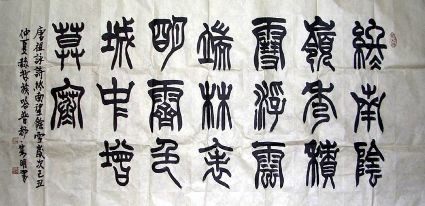 終南陰
嶺秀積
雪浮雲
端林表
明霽色
城中增
莫寒
唐祖詠詩終南望餘雪歲次己丑
仲夏